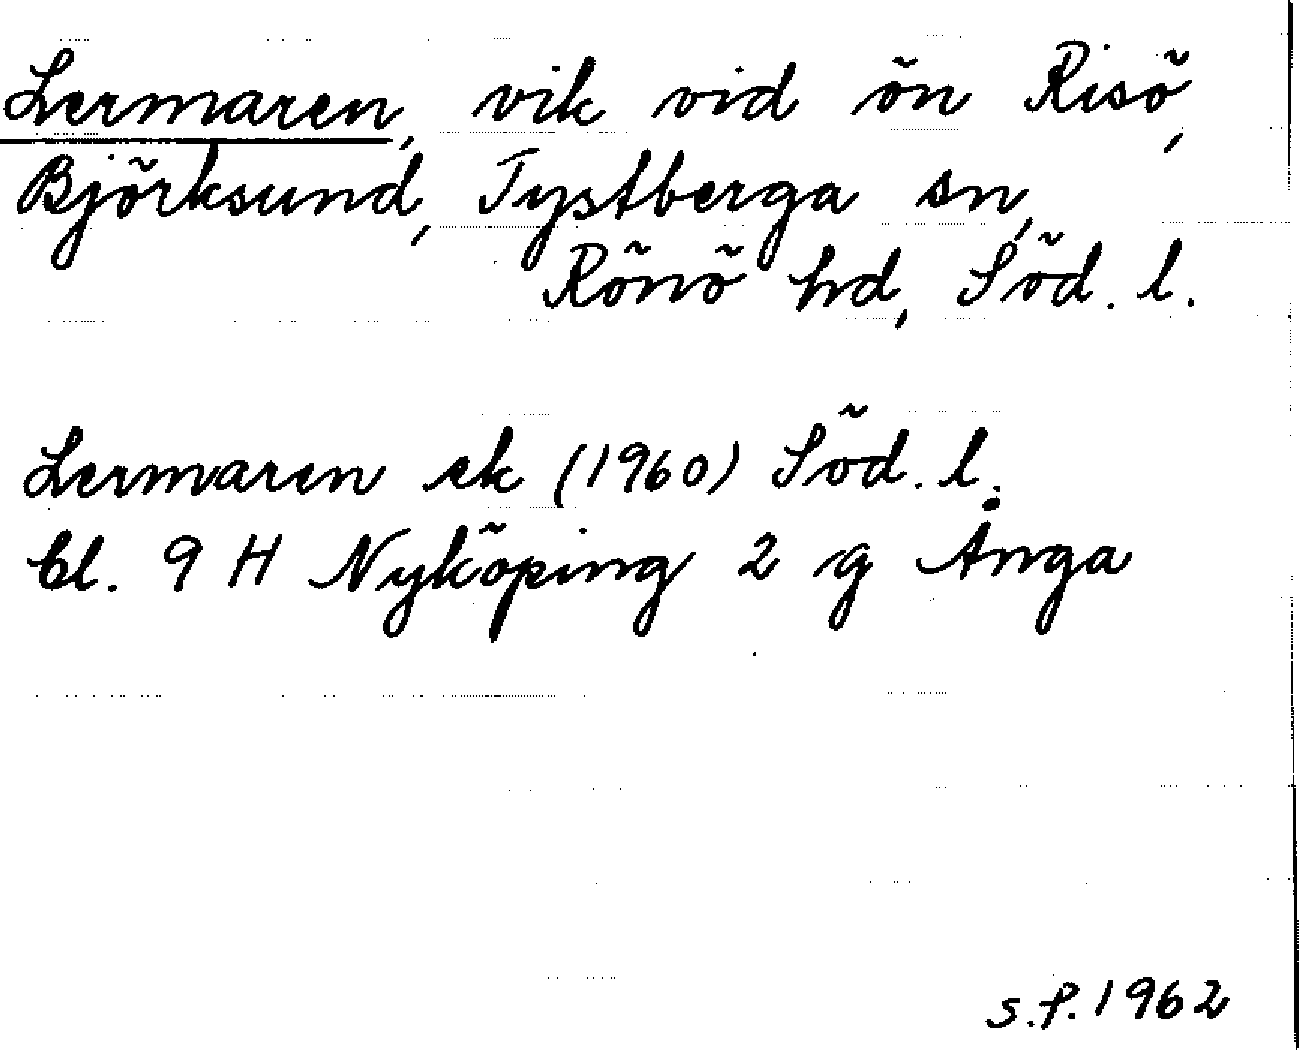 Lermaren, vik vid ön Risö,
Björksund, Tystberga sn,
Rönö hd, Söd. l.
Lermaren ek (1960) Söd. l.
bl. 9 H Nyköping 2 g Ånga
S.P. 1962